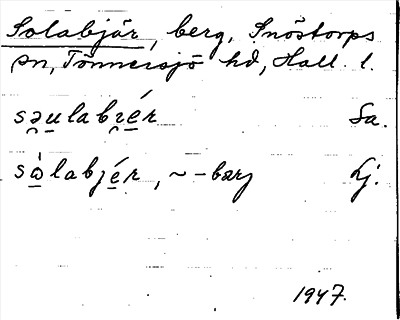 Solabjär, berg, Snöstorps
sn, Tönnersjö hd, Hall. l.
səulabɪér Sa.
sὼlabjér, ~ -bærj Lj.
1947.